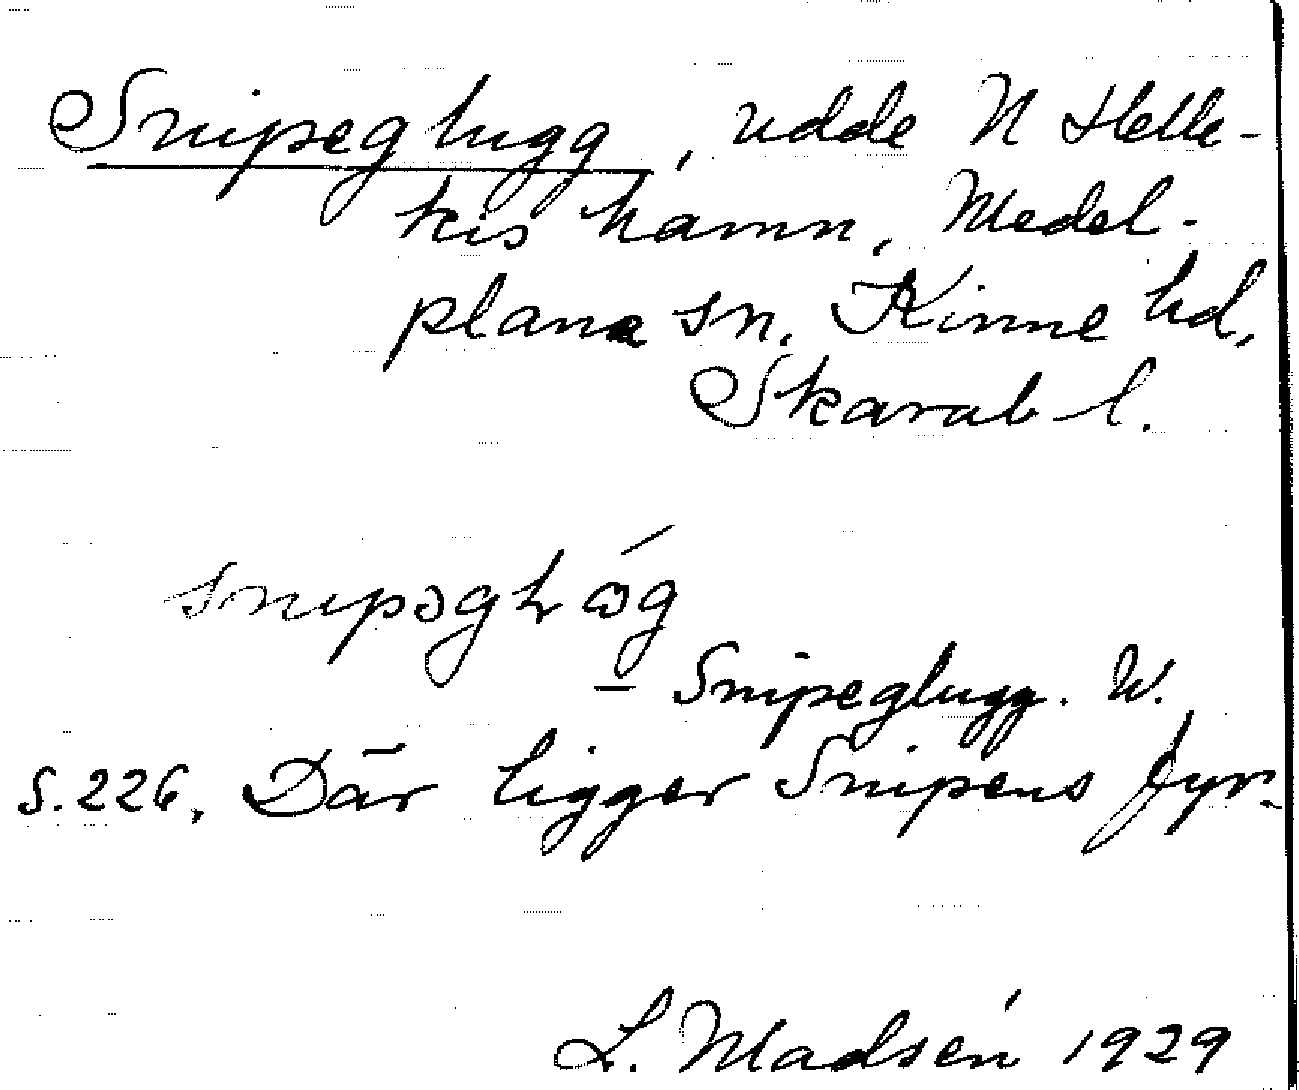 Snipeglugg, udde N Helle-
kis hamn, Medel-
plana sn, Kinne hd,
Skarab l.
snipəglɷ́g
– Snipeglugg. W.
S. 226. Där ligger Snipens fyr.
L. Madsén 1929